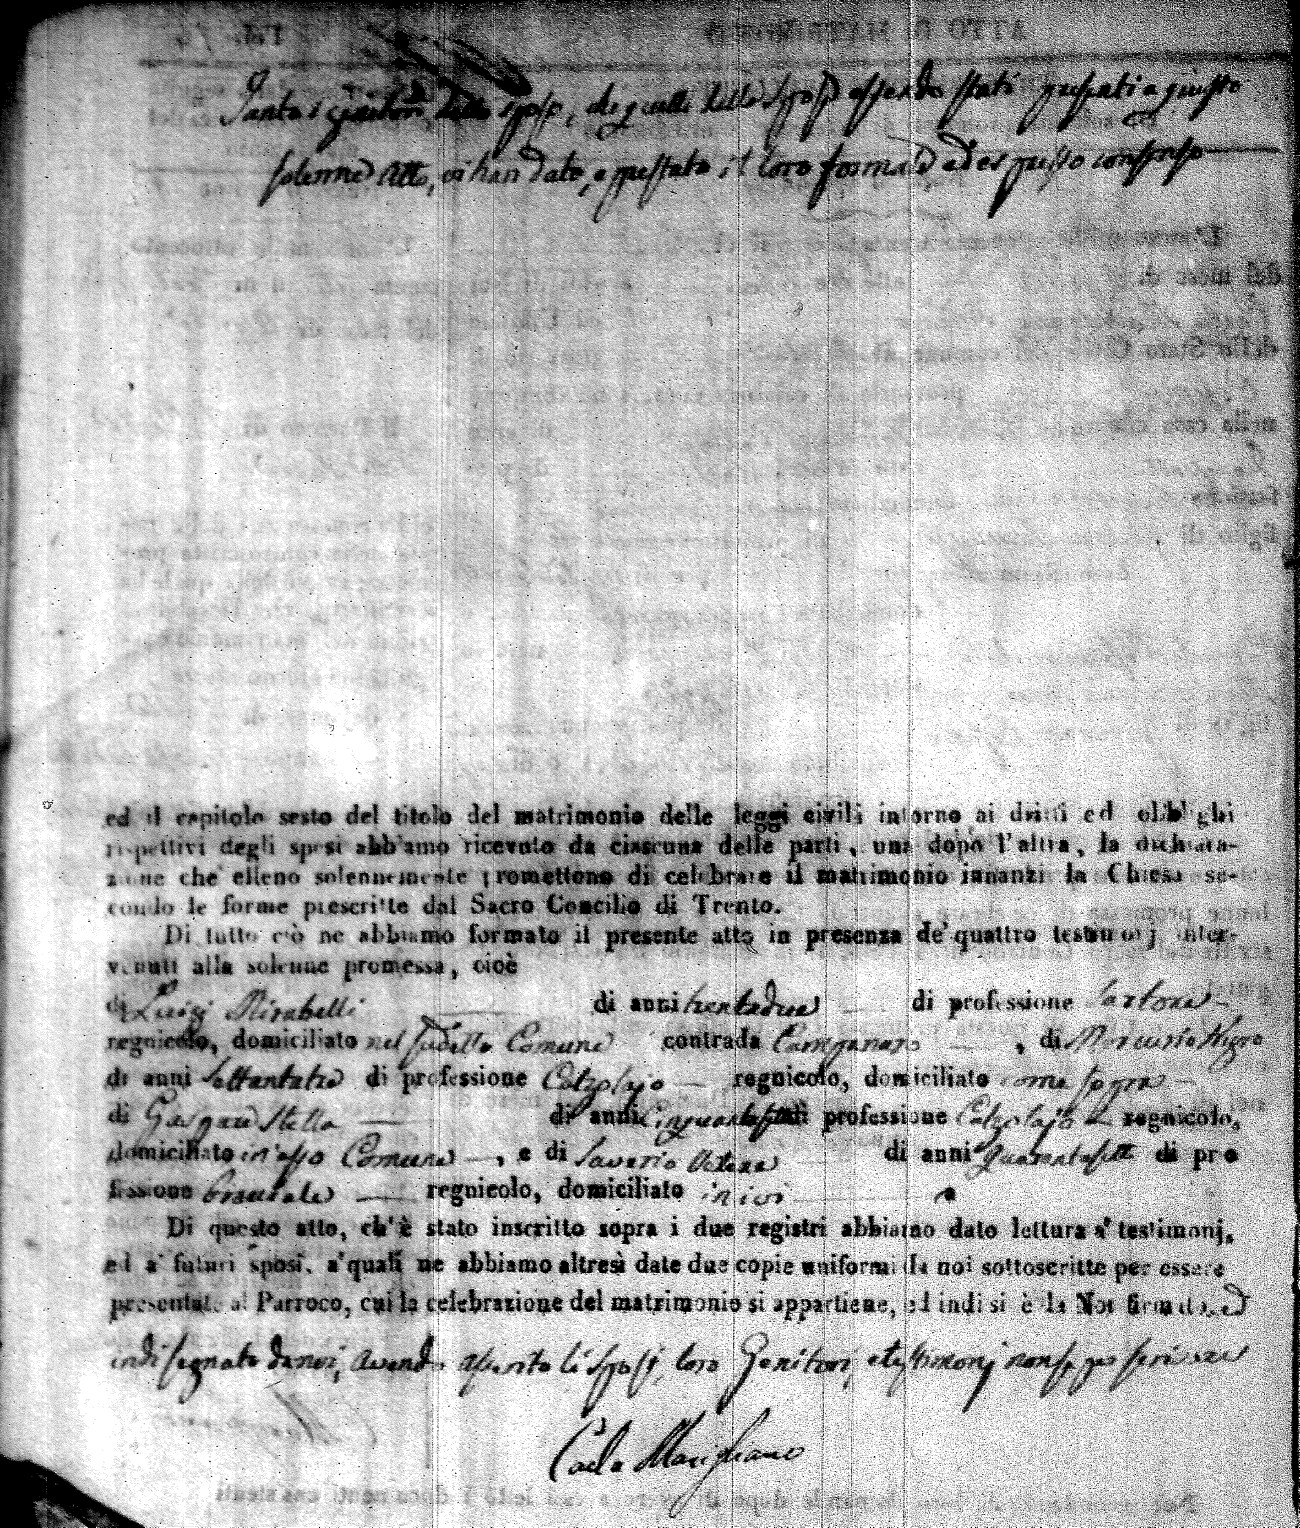 Tanto i genitori dello sposo, che quelli della Sposa essendo stati presenti a questo
solenne Atto, vi han dato, e prestato il loro formale ed espresso consenso
ed il capitolo sesto del titolo del matrimonio delle leggi civili intorno ai dritti ed obblighi
rispettivi degli sposi abb'amo ricevuto da ciascuna delle parti, una dopo l'altra, la dichiara-
zione che elleno solennemente promettono di celebrare il matrimonio innanzi la Chiesa se-
condo le forme prescritte dal Sacro Concilio di Trento.
Di tutto ciò ne abbiamo formato il presente atto in presenza de' quattro testimonj inter-
venuti alla solenne promessa, cioè
di Luigi Mirabelli di anni trentadue di professione
regnicolo, domiciliato nel sudetto Comune contrada Campanaro, di Mercurio
di anni Settantatre di professione Calzolajo regnicolo, domiciliato come sopra
di Gaspare Stella di anni Cinquantasette di professione Calzolajo regnicolo,
domiciliato in esso Comune, e di Saverio di anni Quarantasette di pro
fessione Bracciale regnicolo, domiciliato ivi
Di questo atto, ch'è stato inscritto sopra i due registri abbiamo dato lettura a' testimonj,
ed a' futuri sposi, a' quali ne abbiamo altresì date due copie uniformi da noi sottoscritte per essere
presentate al Parroco, cui la celebrazione del matrimonio si appartiene, ed indi si è da Noi firmato, ed
indi segnato da noi, avendo asserito li Sposi, loro Genitori, e testimonj non saper scrivere
Carlo Marigliano